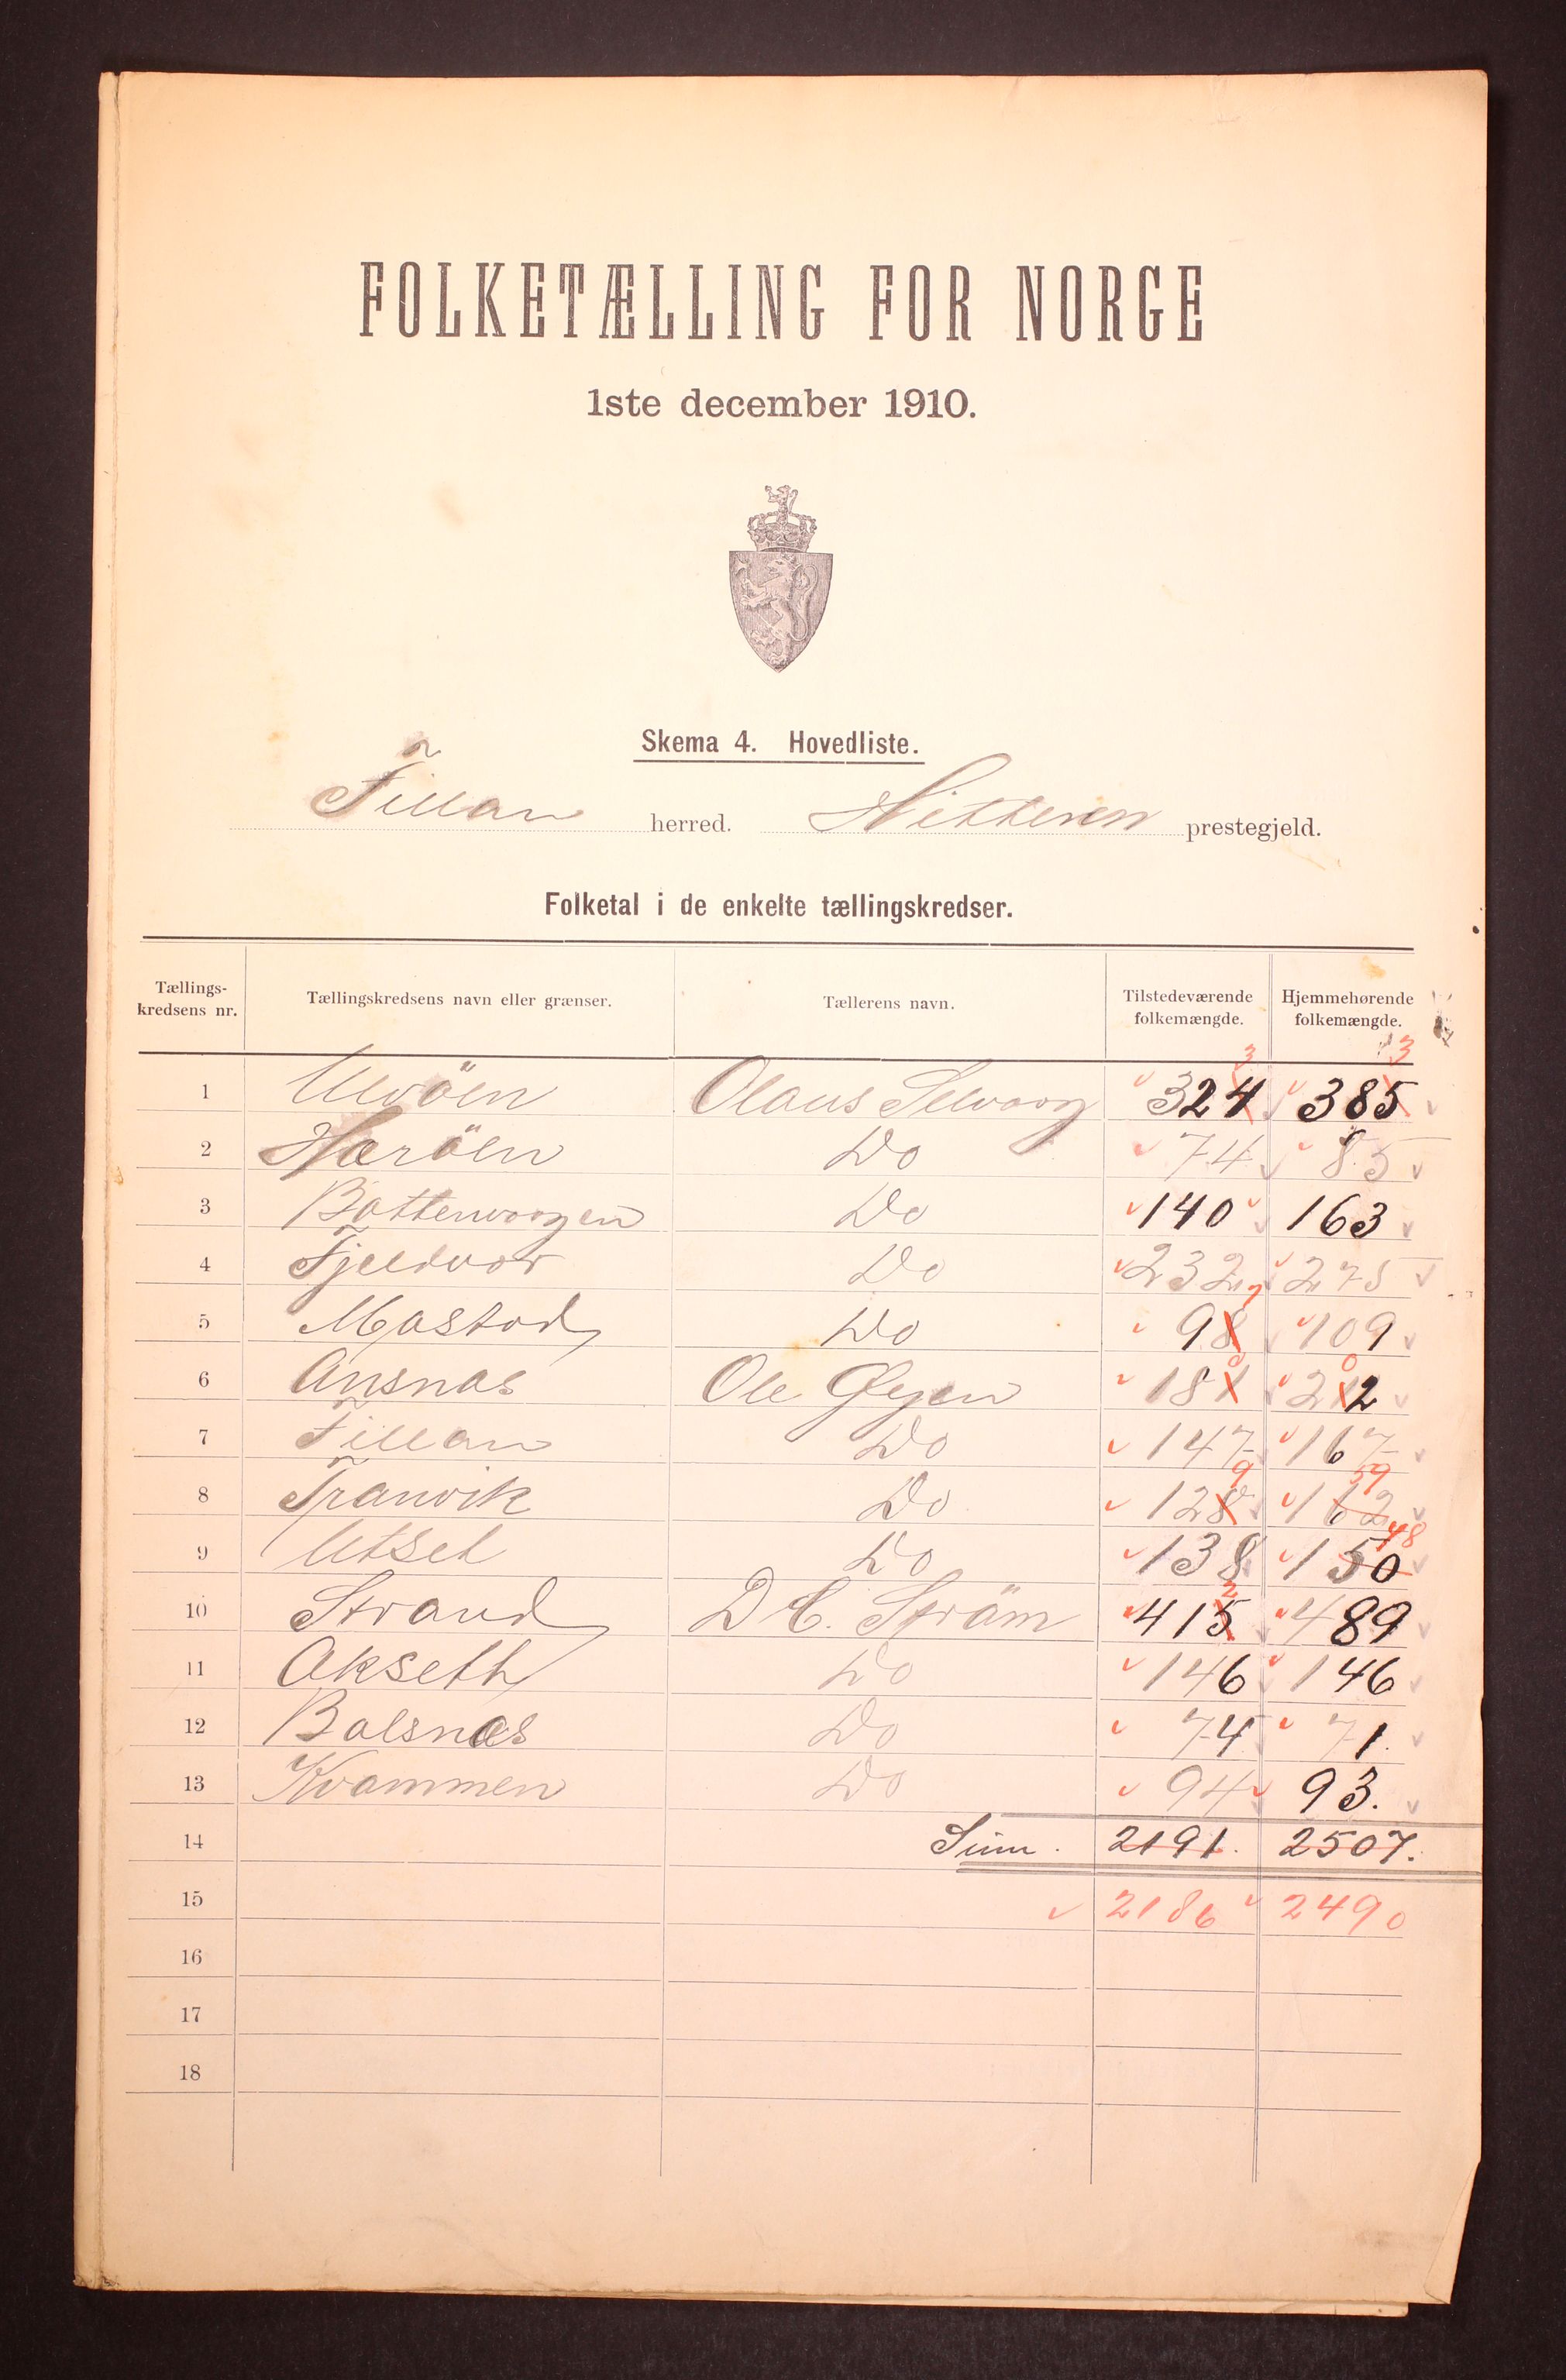 FOLKETÆLLING FOR NORGE
1ste december 1910.
Skema 4. Hovedliste.
Fillan herred. Hitteren prestegjeld.
Folketal i de enkelte tællingskredser.
Tællings-
kredsens nr. Tællingskredsens navn eller grænser. Tællerens navn. Tilstedeværende
folkemængde. Hjemmehørende
folkemængde.
3 3
1 Ulvöen Olaus Selvaag 324 385
2 Hæröen Do 74 85
3 Battenvaagen Do 140 163
4 Fjeldvær Do 232 275
7
5 Mastad Do 98 109
0 0
6 Ansnæs Ole Øyen 181 212
7 Fillan Do 147 167
9 59
8 Tranvik Do 128 162
48
9 Utset Do 138 150
2
10 Strand D C. Ström 415 489
11 Akseth Do 146 146
12 Balsnæs Do 74 71.
13 Kvammen Do 94 93.
14 Sum. 2191. 2507.
15 2186 2490
16
17
18